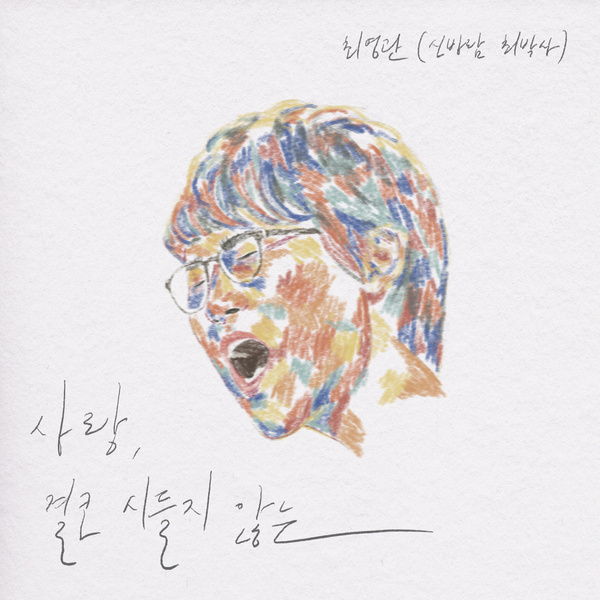 최영관 (신바람 최박사)
사랑,
결코 시들지 않는